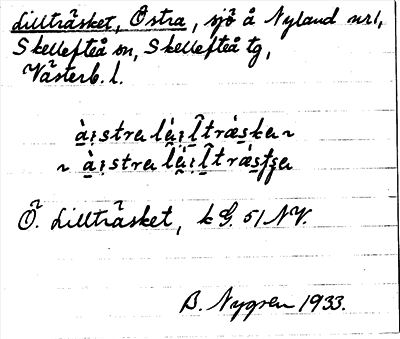 Lillträsket, Östra, sjö å Nyland nr1,
Skellefteå sn, Skellefteå tg,
Västerb. l.
à̱i̩stra lá̱i̩l̂træ̱̀ska ~
~ à̱i̩stra lá̱i̩l̂træ̱̀sʈʂa
Ö. Lillträsket, kG. 51 NV.
B. Nygren 1933.